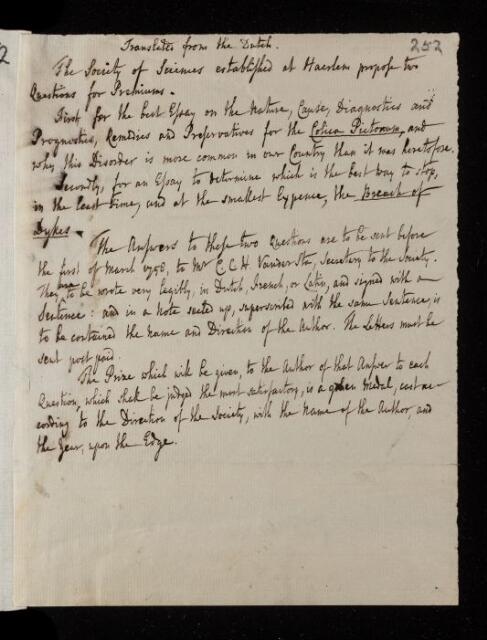 Translated from the Dutch.
252
The Society of Sciences established at Haerlem propose two
Questions for Premiums.
First for the best Essay on the Nature, Cause, Diagnostics and
Prognostics, Remedies and Preservatives for the Colica Pictonum, and
why this Disorder is more common in our Country than it was heretofore.
Secondly, for an Essay to determine which is the best way to stop,
in the least time, and at the smallest Expence, the Breach of
Dykes.
The Answers to these two Questions are to be sent before
the first of March 1756, to Mr C. C. H. Vander Aa, Secretary to the Society.
They are to be wrote very legibly, in Dutch, French, or Latin, and signed with a
Sentence: and in a Note sealed up, superscribed with the same Sentence, is
to be contained the name and Direction of the Author. The Letters must be
sent post paid.
The Prize which will be given, to the Author of that Answer to each
Question, which shall be judged the most satisfactory, is a Medal, cast ac-
cording to the Direction of the Society, with the Name of the Author, and
the Year, upon the Edge.